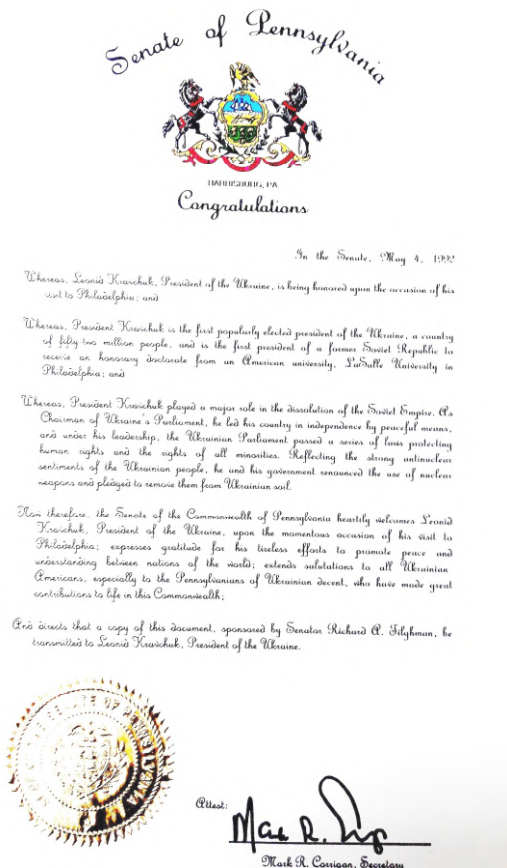 Senate of Pennsylvania
HARRISBURG, PA
Congratulations
In the Senate, May 4, 1992
Whereas, Leonid Kravchuk, President of the Ukraine, is being honored upon the occasion of his
visit to Philadelphia; and
Whereas, President Kravchuk is the first popularly elected president of the Ukraine, a country
of fifty two million people, and is the first president of a former Soviet Republic to
receive an honorary doctorate from an American university, LaSalle University in
Philadelphia; and
Whereas, President Kravchuk played a major role in the dissolution of the Soviet Empire. As
Chairman of Ukraine's Parliament, he led his country in independence by peaceful means,
and under his leadership, the Ukrainian Parliament passed a series of laws protecting
human rights and the rights of all minorities. Reflecting the strong antinuclear
sentiments of the Ukrainian people, he and his government renounced the use of nuclear
weapons and pledged to remove them from Ukrainian soil.
Now therefore, the Senate of the Commonwealth of Pennsylvania heartily welcomes Leonid
Kravchuk, President of the Ukraine, upon the momentous occasion of his visit to
Philadelphia; expresses gratitude for his tireless efforts to promote peace and
understanding between nations of the world; extends salutations to all Ukrainian
Americans, especially to the Pennsylvanians of Ukrainian decent, who have made great
contributions to life in this Commonwealth;
And directs that a copy of this document, sponsored by Senator Richard A. Tilghman, be
transmitted to Leonid Kravchuk, President of the Ukraine.
SENATE OF PENNSYLVANIA
Attest:
Mark R.
Mark R. Corrigan, Secretary